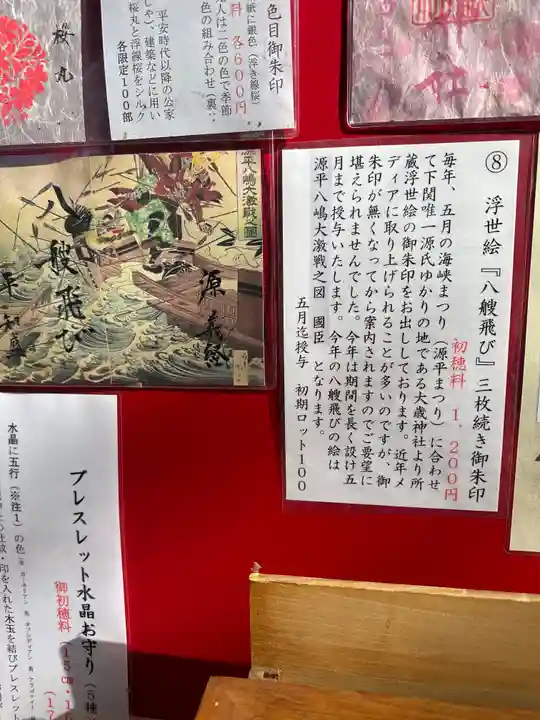 桜丸
色目御朱印
紙に銀色（浮き線桜）
料　各６００円
人は二色の色で季節
色の組み合わせ（裏：
平安時代以降の公家
しゃ）、建築などに用い
桜丸と浮線桜をシルク
各限定１００部
源平八嶋大激戦之圖
源義経
八艘飛び
⑧　浮世絵『八艘飛び』三枚続き御朱印
初穂料　１，２００円
毎年、五月の海峡まつり（源平まつり）に合わせ
て下関唯一源氏ゆかりの地である大歳神社より所
蔵浮世絵の御朱印をお出ししております。近年メ
ディアに取り上げられることが多いのですが、御
朱印が無くなってから案内されますのでご要望に
堪えられませんでした。今年は期間を長く設け五
月まで授与いたします。今年の八艘飛びの絵は
源平八嶋大激戦之図　國臣　となります。
五月迄授与　初期ロット１００
ブレスレット水晶お守り（５種
御初穂料（１５㎝・１
（１７
水晶に五行（※注１）の色
印を入れた木玉を結びブレスレット